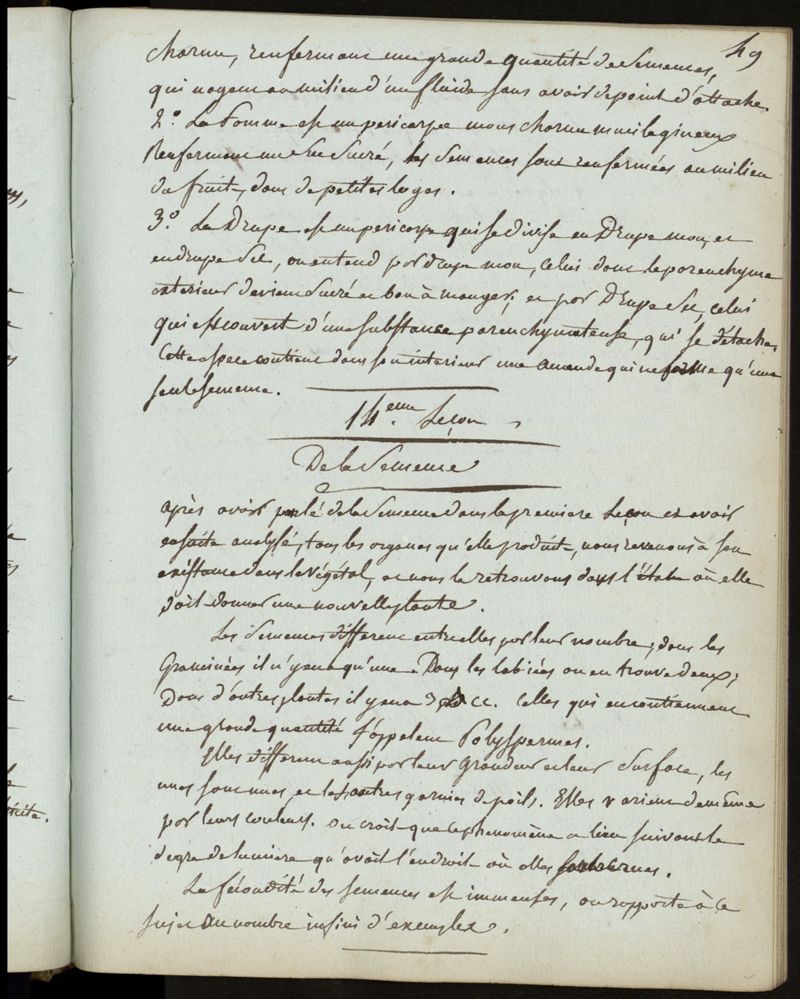 49
charnu, renfermant une grande quantité de semences,
qui nagent au milieu d'un fluide sans avoir de point d'attache.
2.° La Pomme est un pericarpe mous charnu mucilagineux
Renfermant un suc sucré, les semences sont renfermées au milieu
du fruit, dans de petites loges.
3.° La Drupe est un pericarpe qui se divise en Drupe mou, et
en drupe sec, on entend par drupe mou, celui dont le parenchyme
exterieur devient sucré et bon à manger, et par Drupe sec, celui
qui est couvert d'une substance parenchymateuse, qui se détache,
Cette espece contient dans son interieur une amande qui ne forme qu'une
seule semence.
14.eme Leçon
De la Semence
après avoir parlé de la semence dans la premiere Leçon et avoir
ensuite analysé, tous les organes qu'elle produit, nous revenons à son
existance dans le végétal, et nous la retrouvons dans l'état où elle
doit donner une nouvelle plante.
Les semences différent entr'elles par leur nombre; dans les
Graminées il n'y en a qu'une. Dans les labiées on en trouve deux;
Dans d'autres plantes il y en a 3 &c. Celles qui en contiennent
une grande quantité s'appelent Polyspermes.
Elles different aussi par leur Grandeur et leur surface, les
unes sont nues, et les autres garnies de poils. Elles varient de même
par leurs couleurs. On croit que ce phenomène a lieu suivant le
degré de lumiere qu'avait l'endroit où elles
La fécondité des semences est immense, on rapporte à ce
sujet un nombre infini d'exemples.